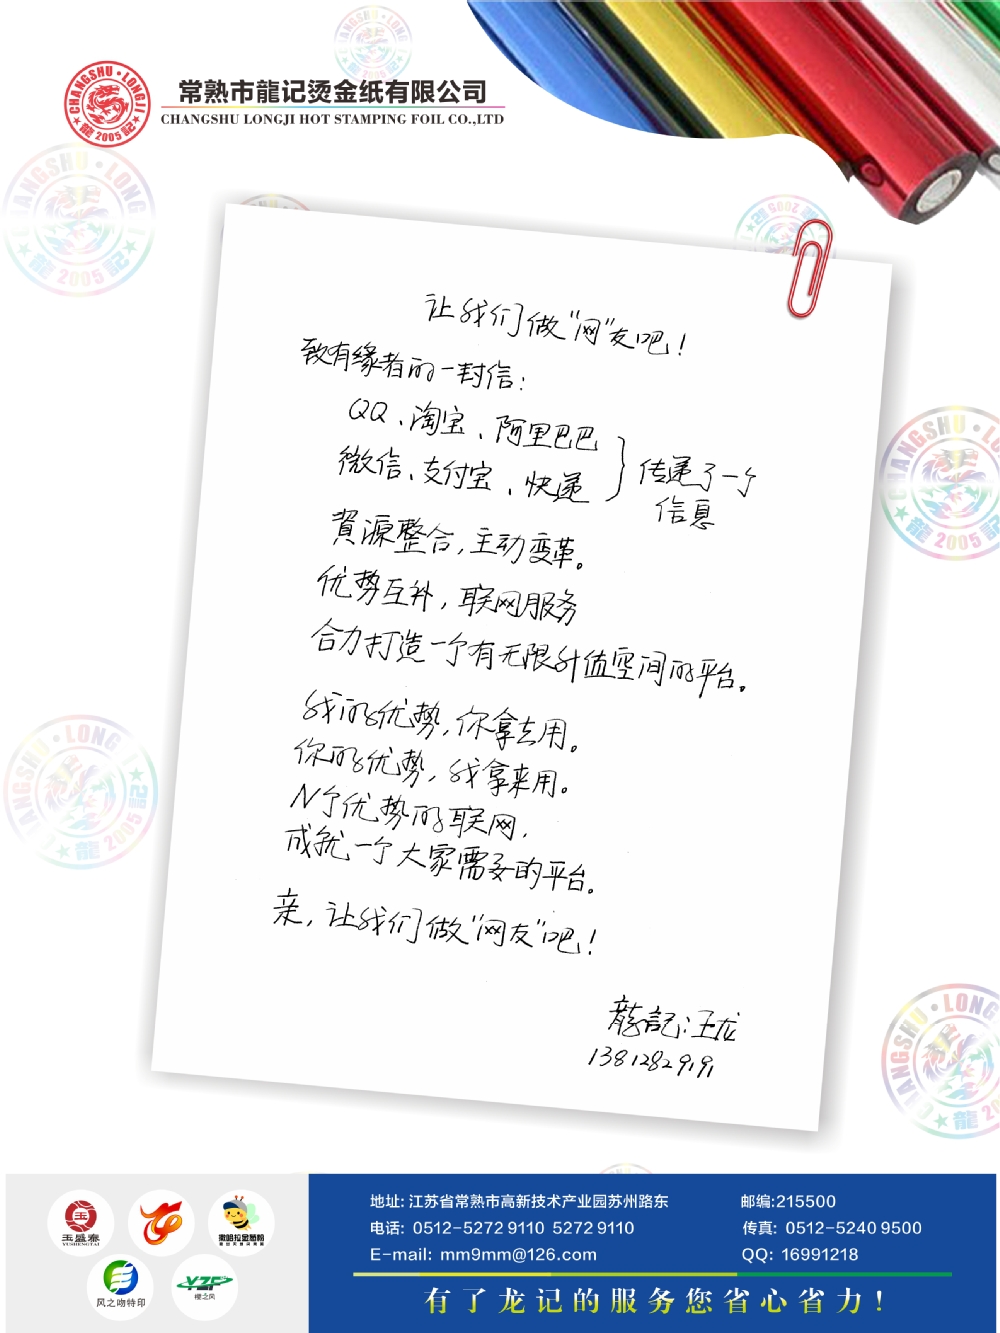 常熟市龍记烫金纸有限公司
CHANGSHU LONGJI HOT STAMPING FOIL CO.,LTD
CHANGSHU·LONGJI
龍2005記
让我们做"网"友吧!
致有缘者的一封信:
QQ、淘宝、阿里巴巴
微信、支付宝、快递
传递了一个
信息
資源整合,主动变革。
优势互补,联网服务
合力打造一个有无限升值空间的平台。
我的优势,你拿去用。
你的优势,我拿来用。
N个优势的联网,
成就一个大家需要的平台。
亲,让我们做"网友"吧!
龍記:王龙
13812829191
玉盛泰
YUSHENGTAI
撒哈拉金葱粉
风之吻特印
YZF
樱之凤
地址: 江苏省常熟市高新技术产业园苏州路东
邮编:215500
电话: 0512-5272 9110 5272 9110
传真: 0512-5240 9500
E-mail: mm9mm@126.com
QQ: 16991218
有了龙记的服务您省心省力!